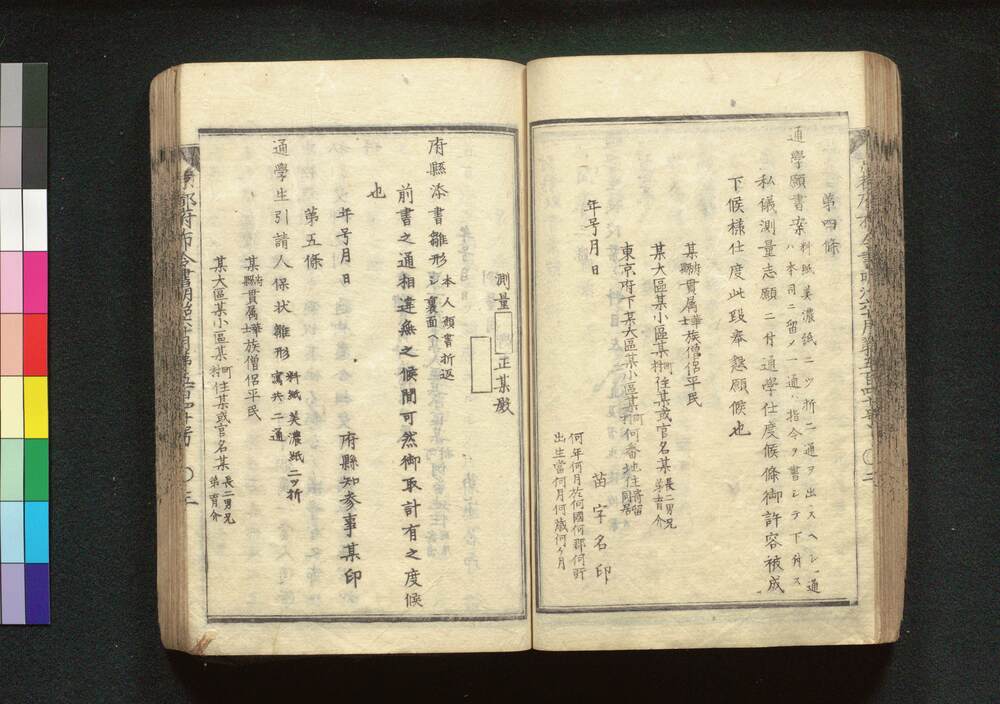 第四條
通學願書案 料紙美濃紙二ツ折二通ヲ出スヘシ一通
ハ本司ニ留メ一通ハ指令ヲ書シテ下付ス
私儀測量志願ニ付通學仕度候條御許容被成
下候樣仕度此段奉懇願候也
某府縣貫属華士族僧侶平民
某大區某小區某町村住某或官名某長二男兄弟育介
東京府下某大區某小區某町何番地住寄留同居
苗字名印
何年何月於何國何郡何町
出生當何月何歳何ヶ月
年号月日
測量正某殿
府縣添書雛形 本人願書折返
シ裏面ヘ
前書之通相違無之候間可然御取計有之度候
也
年号月日
府縣知参事某印
第五條
通學生引請人保状雛形 料紙美濃紙二ツ折
寫共二通
某府縣貫属華士族僧侶平民
某大區某小區某町村住某或官名某長二男兄弟育介